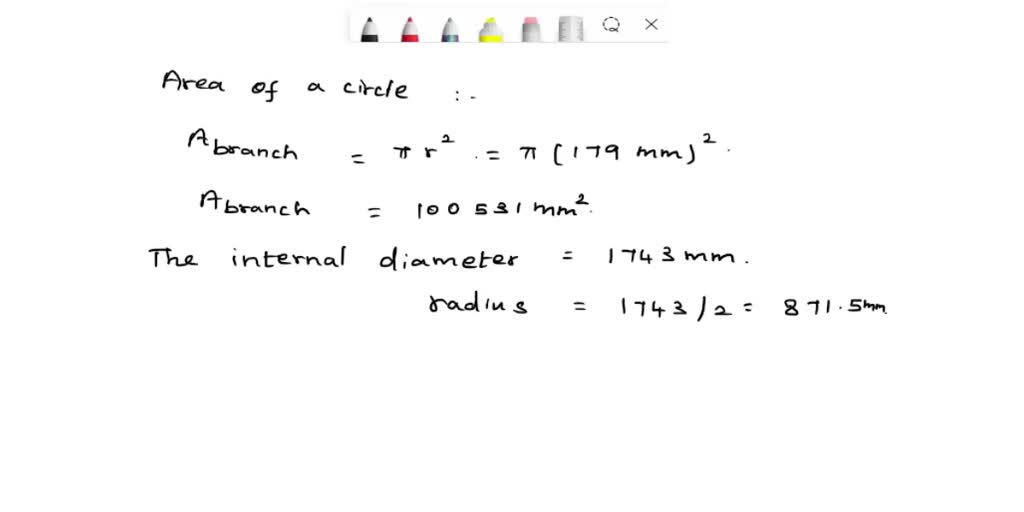 Area of a circle :-
A branch = π r² . = π (179 mm)² .
A branch = 100 531 mm².
The internal diameter = 1743 mm .
radius = 1743 / 2 = 871.5 mm.